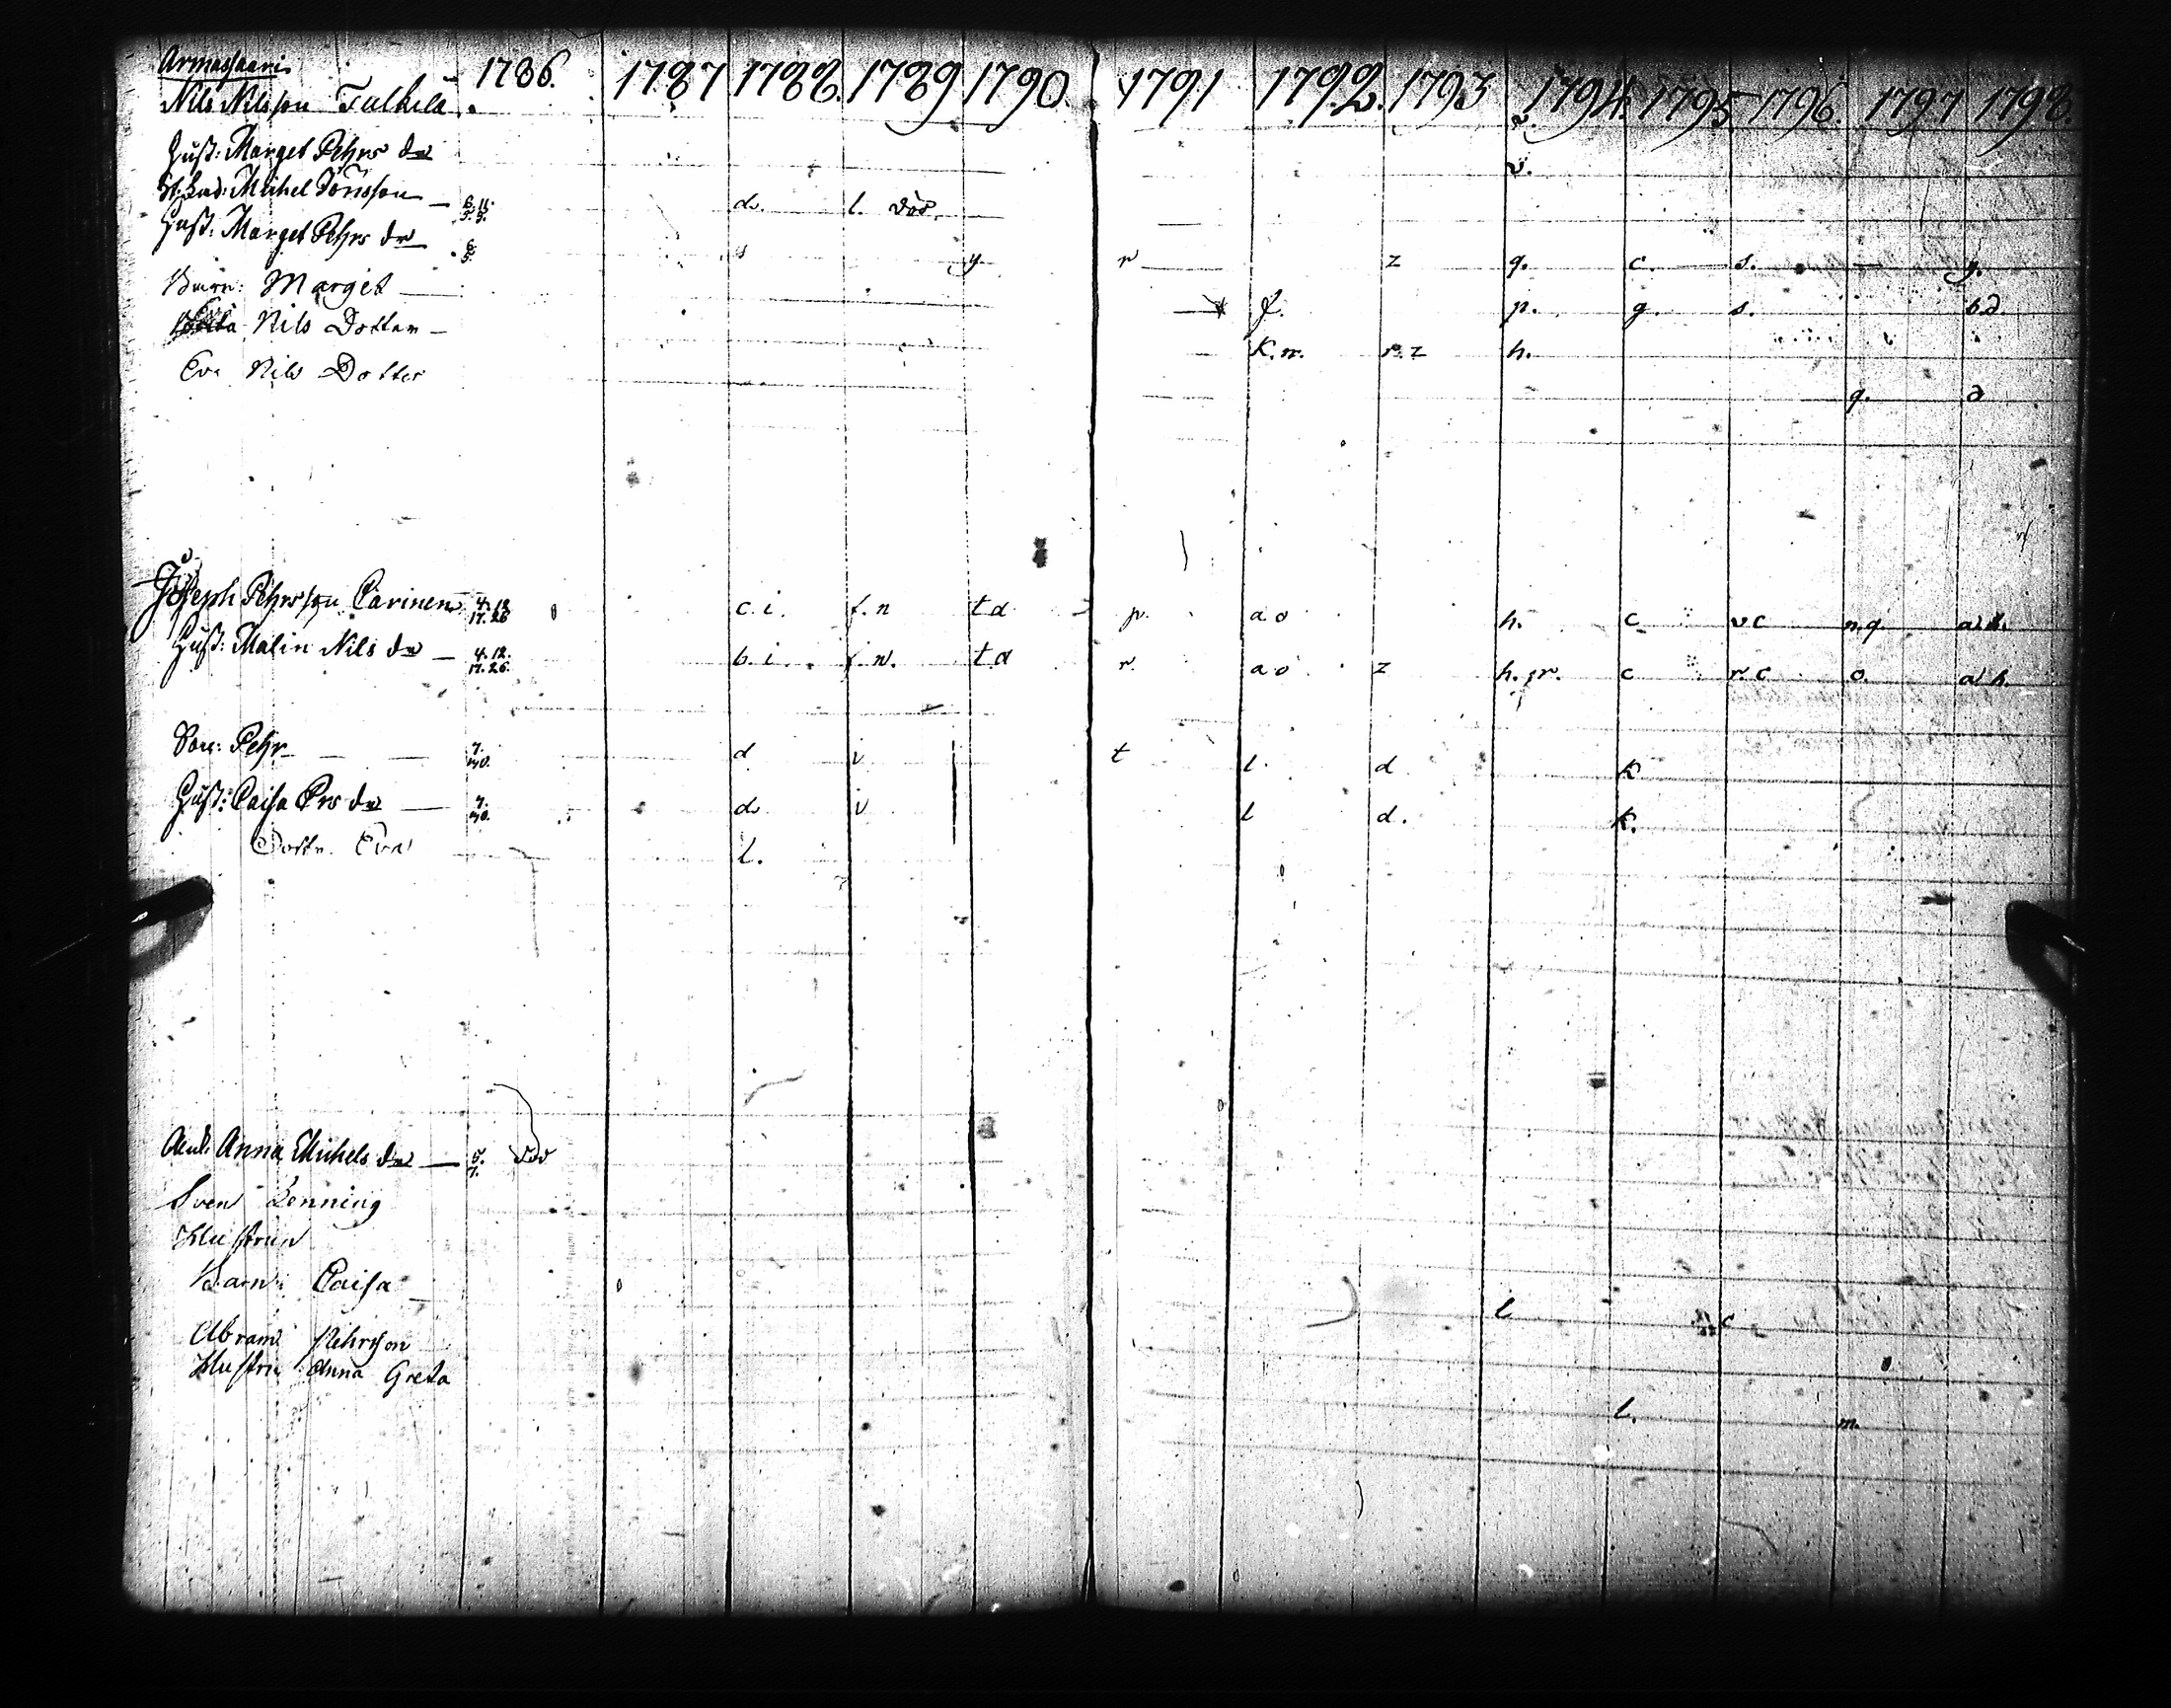 Armassaari 1786. 1787 1788. 1789 1790. 1791 1792. 1793 1794. 1795 1796. 1797 1798.
Nils Nilsson v.
Hust: Marget Pehrs dr v.
Michel Jönsson 6. 11. d. l. död.
Hust: Marget Pehrs dr s y. r z q. c. s. — y.
Barn: Marget f. p. g. s. bd.
Nils Dotter K. n. r. z h.
Eva Nils Dotter q. d
Joseph Pehrsson Carinen 4. 12. 17. 26 c. i. f. n t d p. a o h. c v c n. q. a. h.
Hust: Malin Nils dr 4. 12. 17. 26. b. i. f. n. t d r. a o z h. c r c o. a h.
Son: Pehr 7. d v t l. d k
Hust: Caisa Prs dr 7. d. v l d. k.
Dottr. Eva l.
Anna Michels dr 5. 7. död
Sven Lenning
Hustrun
Barn: Caisa l c
Abram Pehrson
Hustru Anna Greta
l. m.